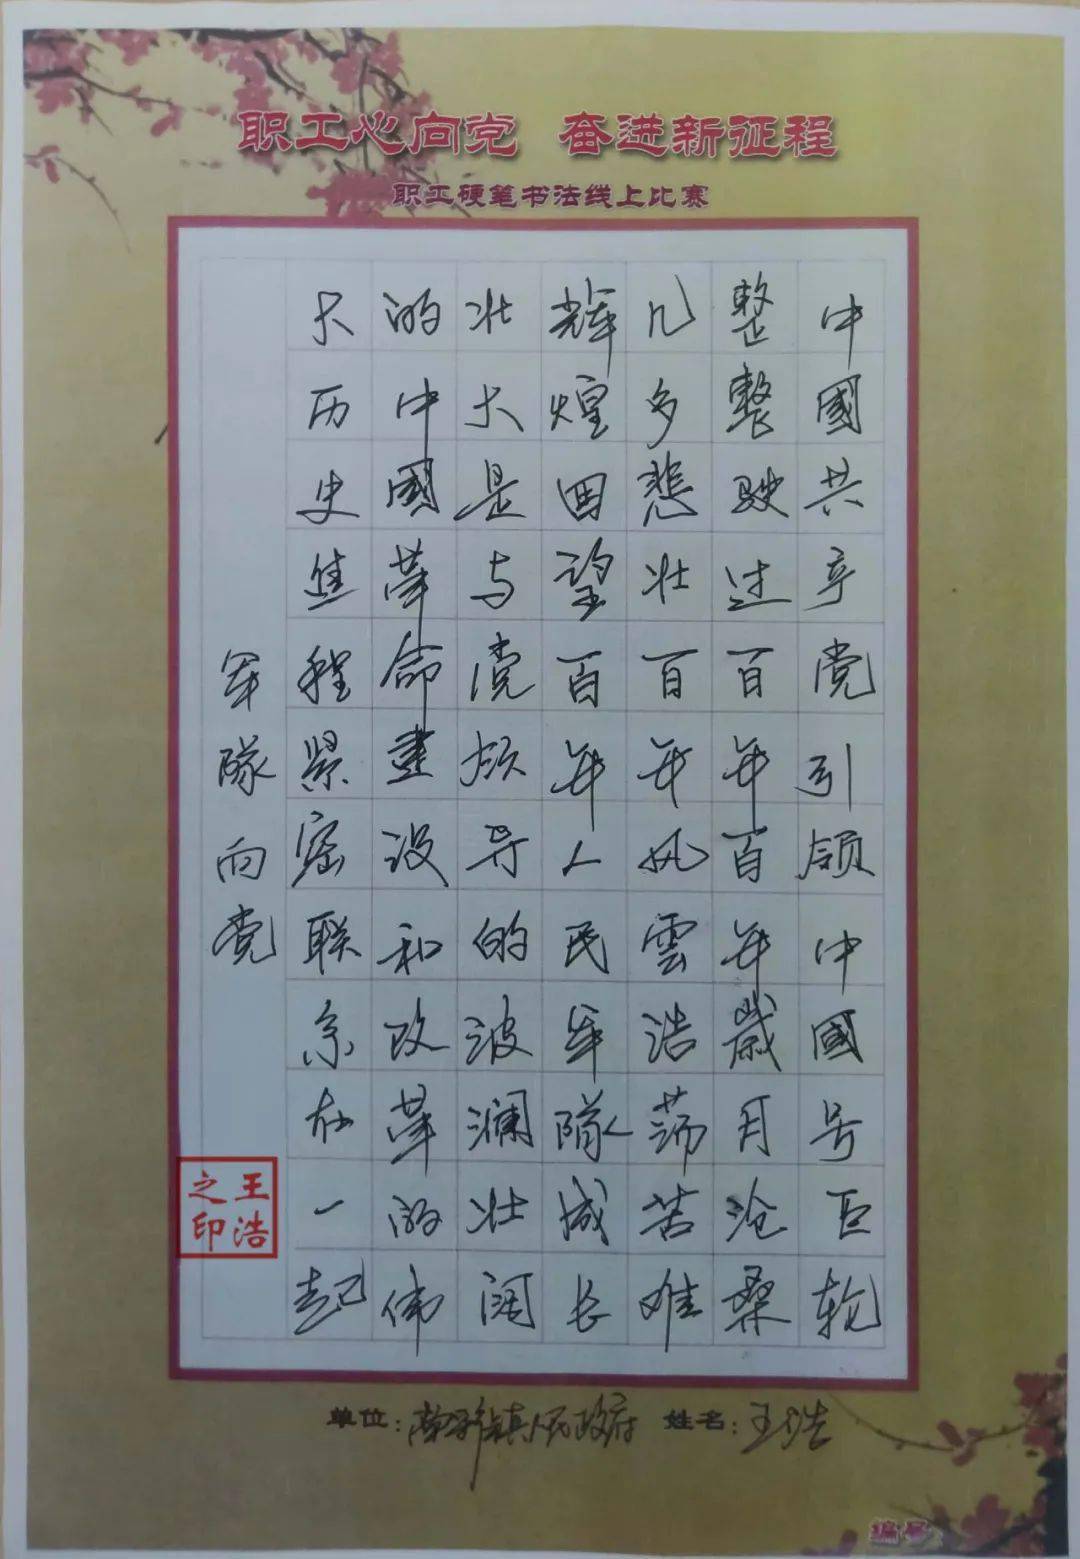 职工心向党 奋进新征程
职工硬笔书法线上比赛
中國共产党引领中國号巨轮
整整驶过百年百年岁月沧桑
几多悲壮百年风雲浩荡苦难
辉煌回望百年人民军隊成长
壮大是与党领导的波澜壮阔
的中國革命建设和改革的伟
大历史进程紧密联系在一起
军隊向党
王浩之印
单位:镇人民政府 姓名:王浩
编号